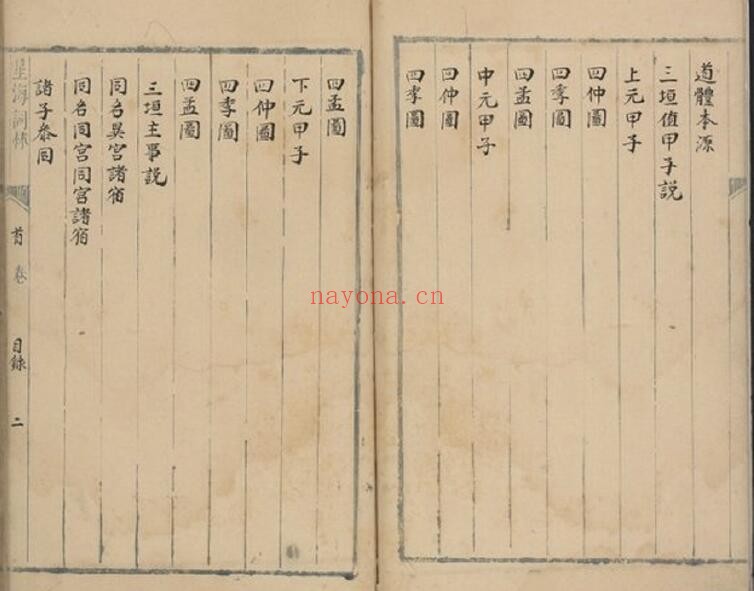 道體本源
三垣值甲子説
上元甲子
四仲圖
四季圖
四孟圖
中元甲子
四仲圖
四季圖
四孟圖
下元甲子
四仲圖
四季圖
四孟圖
三垣主事説
同名異宮諸宿
同名同宮同宮諸宿
諸子叅同
星海詞林
首卷
目錄
二
nayona.cn